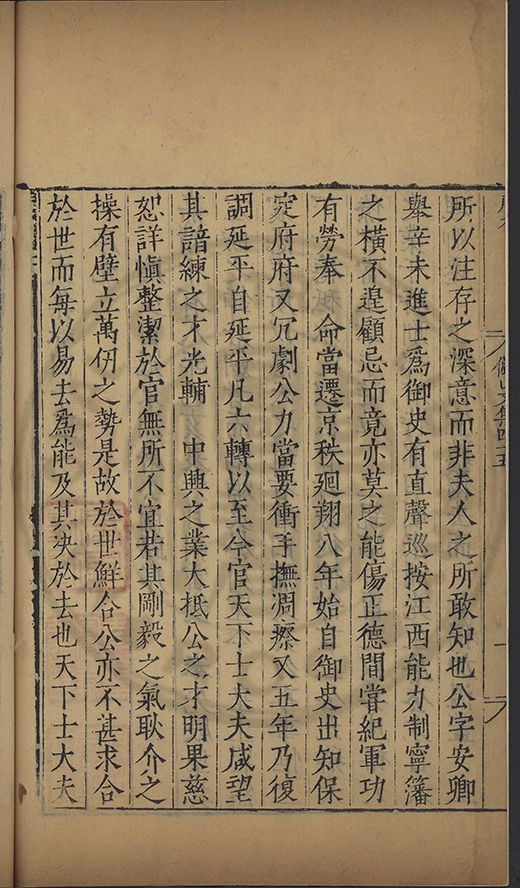 所以注存之深意而非夫人之所敢知也公字安卿
舉辛未進士爲御史有直聲巡按江西能力制寧藩
之橫不遑顧忌而竟亦莫之能傷正德間嘗紀軍功
有勞奉 命當遷京秩廻翔八年始自御史出知保
定府府又冗劇公力當要衝手撫凋瘵又五年乃復
調延平自延平凡六轉以至今官天下士大夫咸望
其諳練之才光輔 中興之業大抵公之才明果慈
恕詳愼整潔於官無所不宜若其剛毅之氣耿介之
操有壁立萬仞之勢是故於世鮮合公亦不甚求合
於世而每以易去爲能及其决於去也天下士大夫